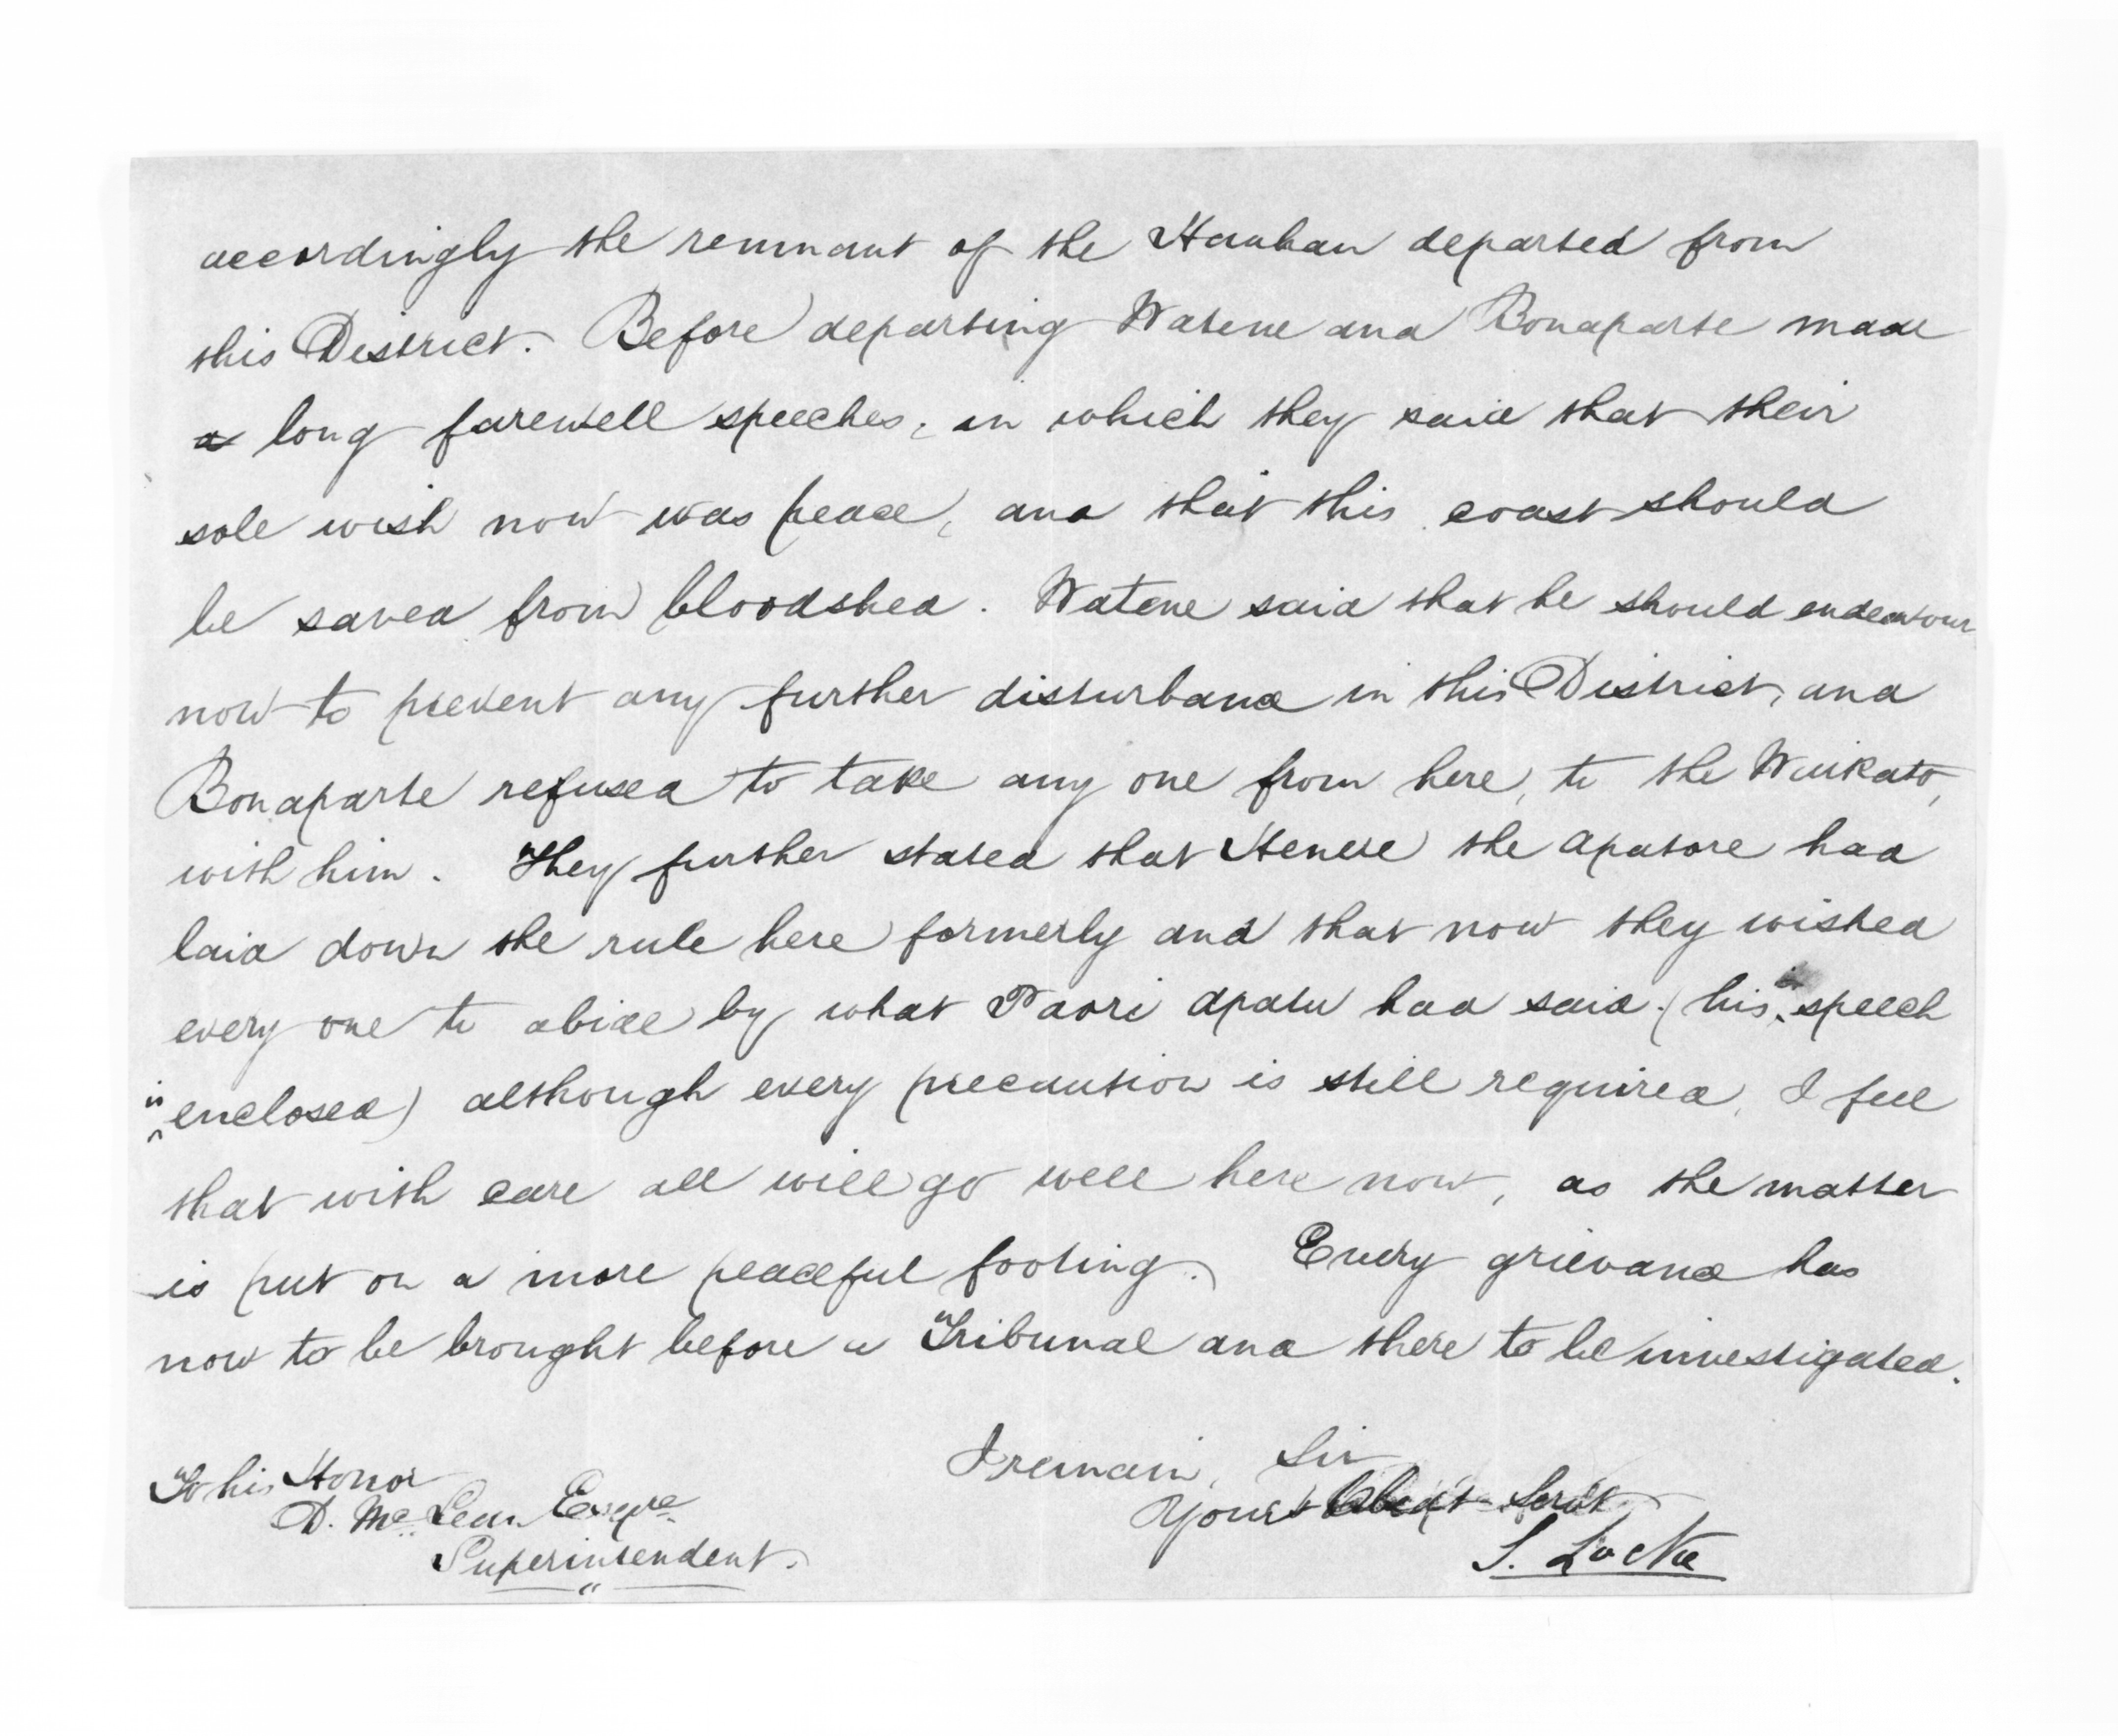 accordingly the remnant of the Hauhau departed from
this District. Before departing Watene and Bonaparte made
a long farewell speeches, in which they said that their
sole wish now was peace, and that this coast should
be saved from bloodshed. Watene said that he should endeavour
now to prevent any further disturbance in this District, and
Bonaparte refused to take any one from here, to the Waikato,
with him. They further stated that the Apatore had
laid down the rule here formerly and that now they wished
every one to abide by what Paori Apatu had said. (his speech
is enclosed) although every precaution is still required, I feel
that with care all will go well here now, as the matter
is put on a more peaceful footing. Every grievance has
now to be brought before a Tribunal and there to be investigated.
I remain, Sir
Your Obedt Servt
S. Locke
To his Honor
D. McLean Esqre
Superintendent.